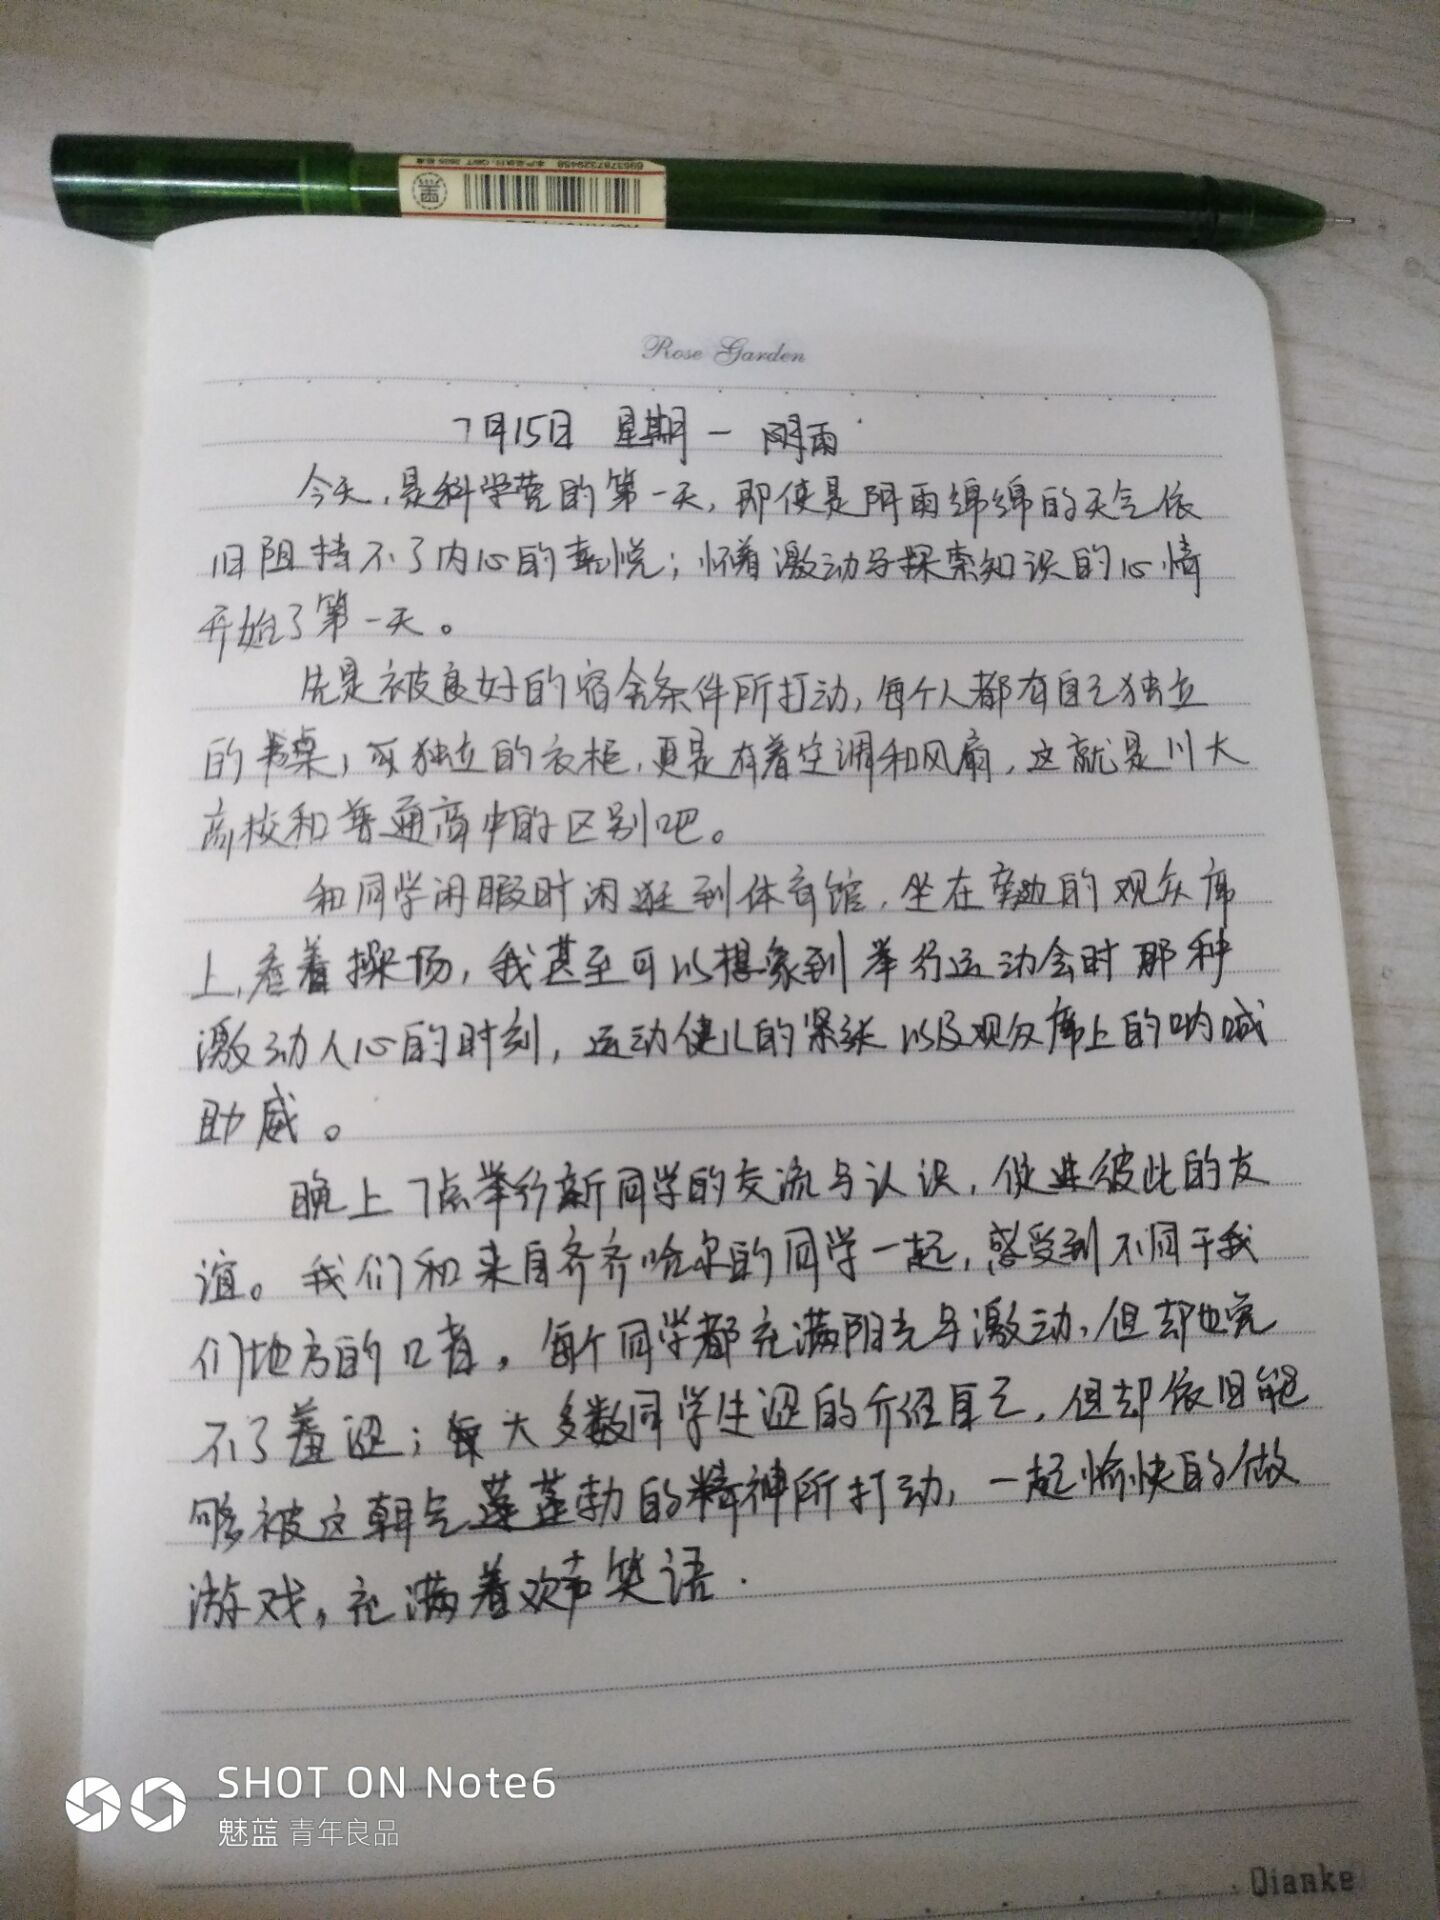 6953787329458
Rose Garden
7月15日 星期一 阴雨
今天,是科学营的第一天,即使是阴雨绵绵的天气依
旧阻挡不了内心的喜悦;怀着激动与探索知识的心情
开始了第一天。
先是被良好的宿舍条件所打动,每个人都有自己独立
的书桌,独立的衣柜,更是有着空调和风扇,这就是川大
高校和普通高中的区别吧。
和同学闲暇时闲逛到体育馆,坐在旁边的观众席
上,看着操场,我甚至可以想象到举行运动会时那种
激动人心的时刻,运动健儿的紧张以及观众席上的呐喊
助威。
晚上7点举行新同学的交流与认识,促进彼此的友
谊。我们和来自齐齐哈尔的同学一起,感受到不同于我
们地方的口音。每个同学都充满阳光与激动,但却也免
不了羞涩;大多数同学生涩的介绍自己,但却依旧能
够被这朝气蓬蓬勃的精神所打动,一起愉快的做
游戏,充满着欢声笑语.
SHOT ON Note6
魅蓝 青年良品
Qianke